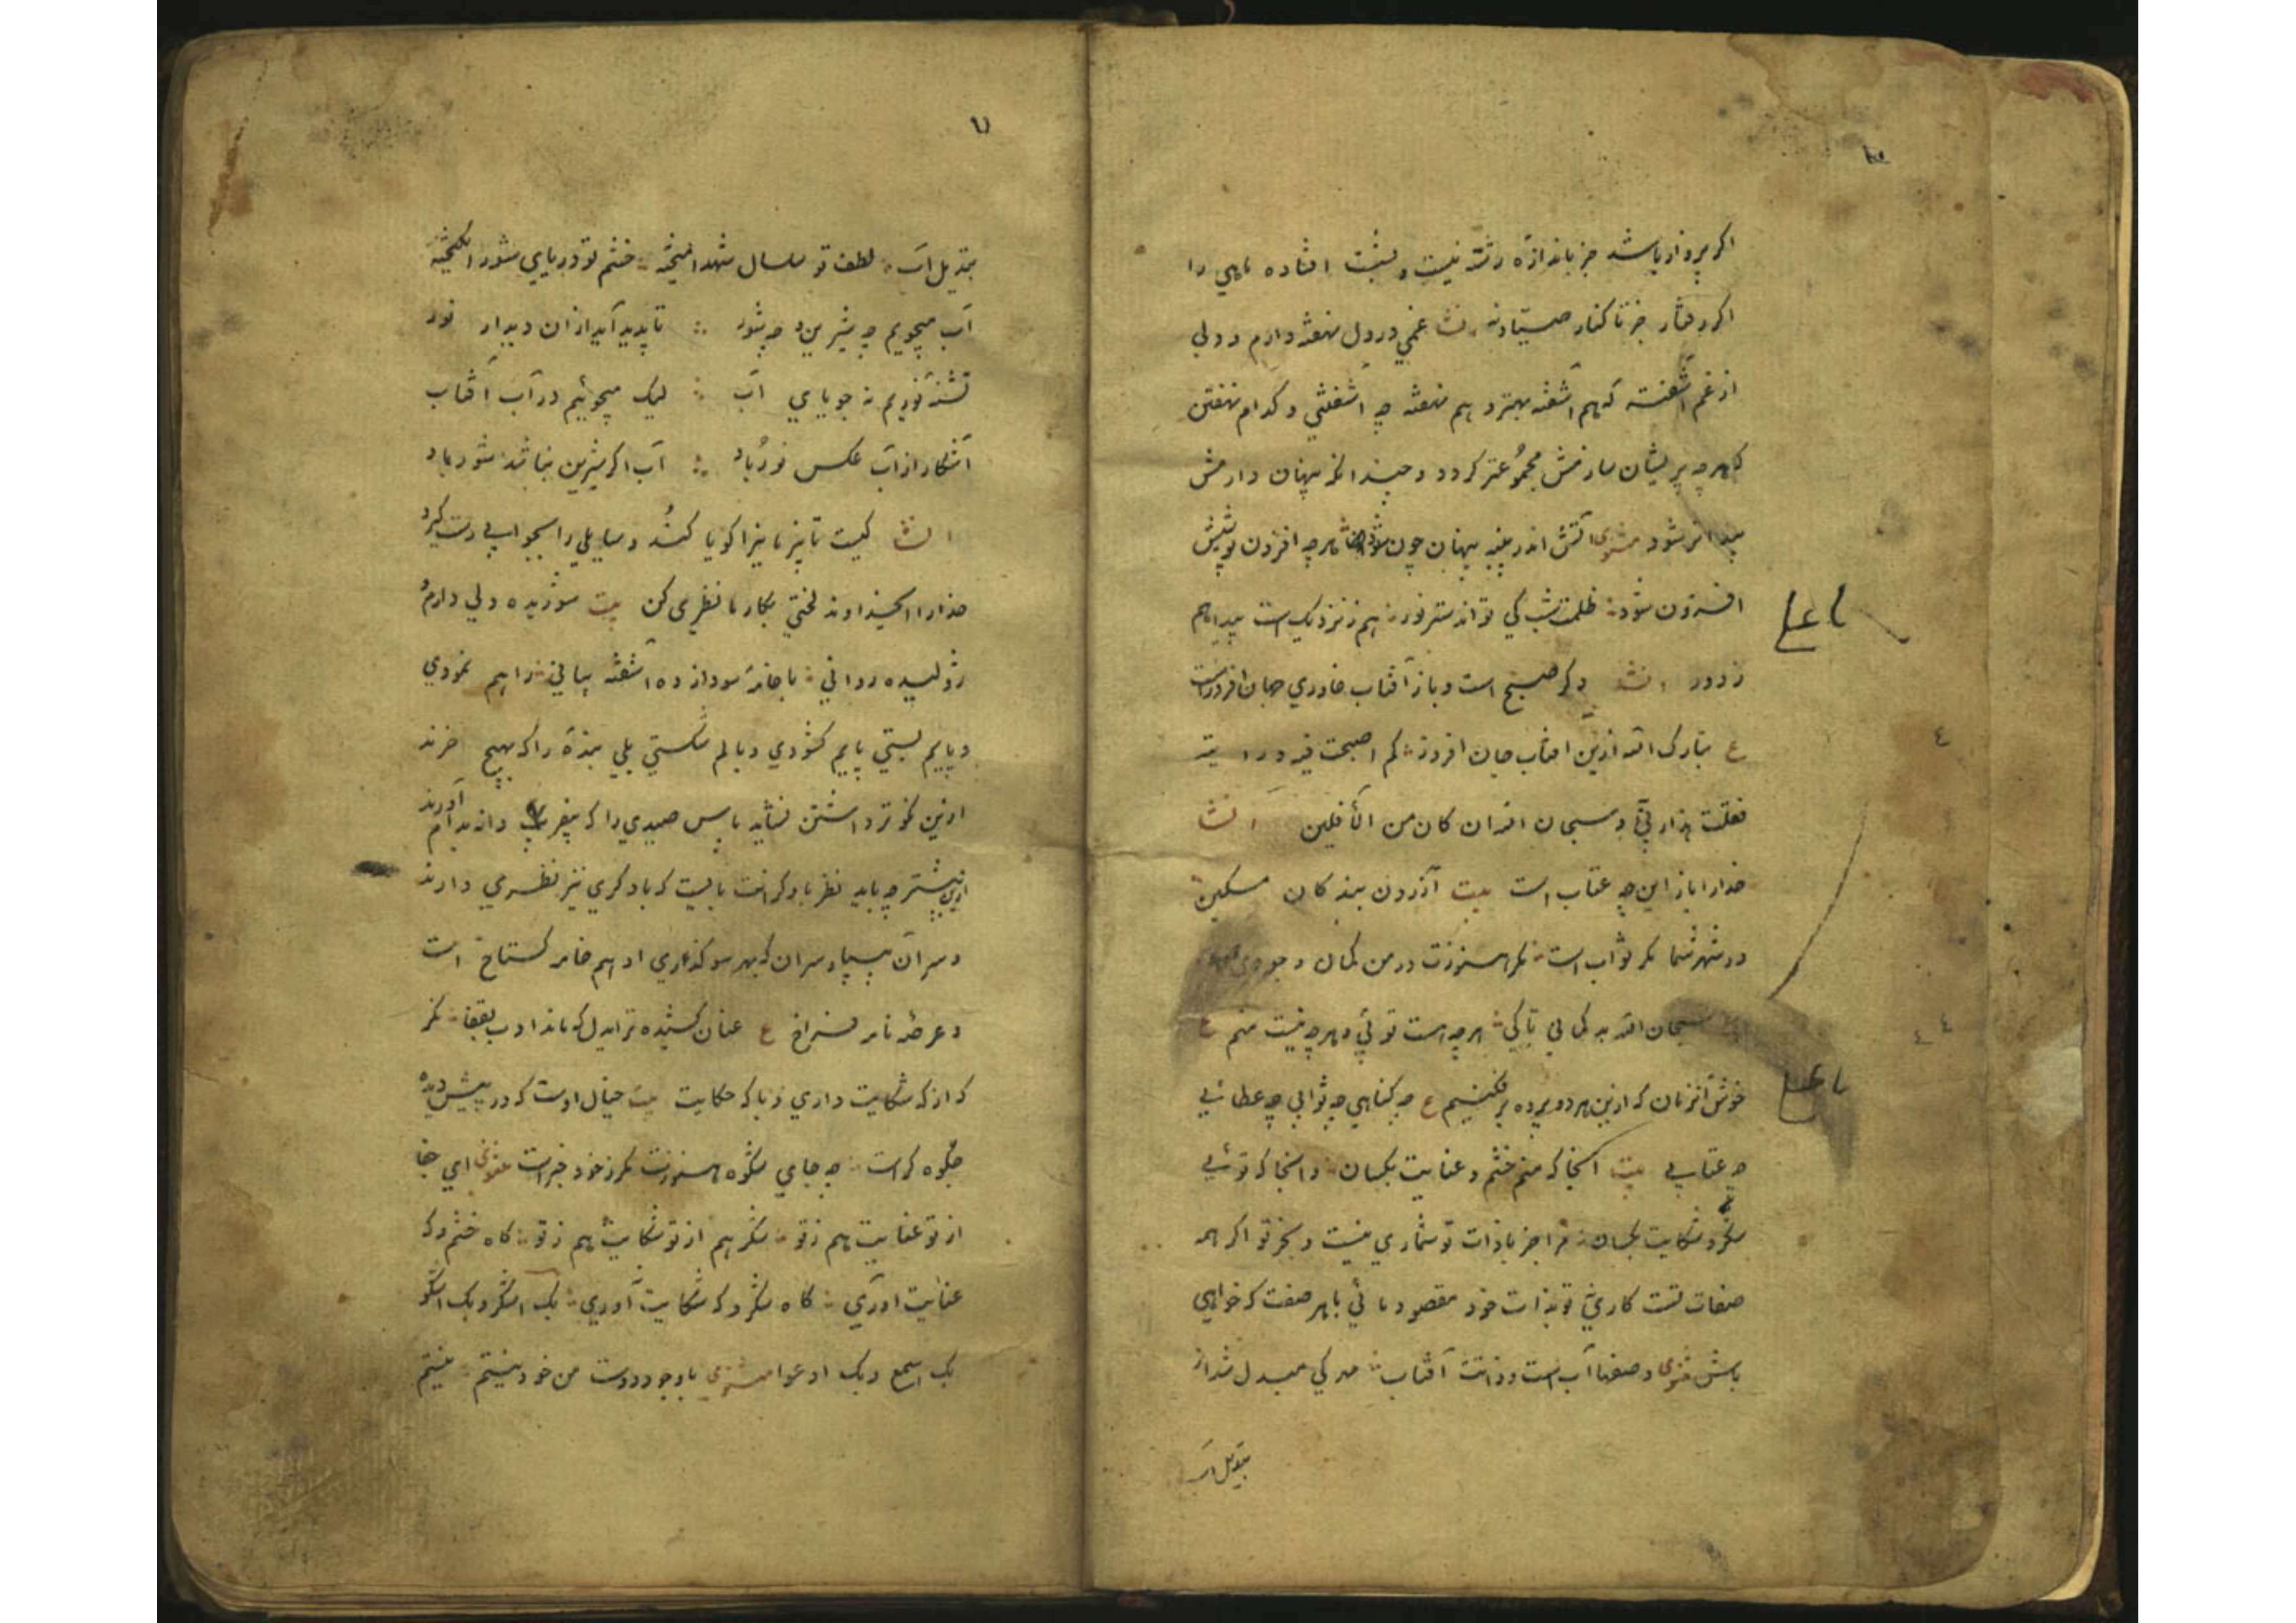 اگر پرواز باشد جز باندازه رشته نیست و بشت افتاده ماهی را
اگر رفتار جز تا کنار صیاد نه انشا غمی در دل نهفته دارم و دلی
از غم آشفته که هم آشفته بهتر و هم نهفته چه آشفتنی و کدام نهفتن
که هر چه پریشان سازمش مجموعتر کردد و چندانکه پنهان دارمش
پیداتر شود مثنوی آتش اندر پنبه پنهان چون شود هر چه افزون پوشیش
افزون شود ظلمت شب کی تواند ستر نور هم ز نزدیک است پیدا هم
ز دور انشا دگر صبح است و باز آفتاب خاوری جهان افروز است
ع تبارک الله ازین آفتاب جان افروز کم اصبحت فیه
فقلت هذا ربی و سبحان الله ان کان من الآفلین انشا
خدارا باز این چه عتاب است بیت آزردن بندکان مسکین
در شهر شما مکر ثواب است مکر هنوزت در من کمان وجودی
سبحان الله بد کمانی تا کی هر چه هست توئی و هر چه نیست منم ع
خوش آنزمان که ازین هر دو پرده بر فکنیم ع چه کناهی چه ثوابی چه عطائی
چه عتابی بیت آنجا که منم خشم و عنایت یکسان و آنجا که توئی
شکر و شکایت یکسان مرا جز با ذات تو شماری نیست و بجز تو اگر همه
صفات تست کاری نه تو بذات خود مقصود مائی با هر صفت که خواهی
باش مثنوی وصفها آب است و ذاتت آفتاب مه کی مبدل شد از
بتبدیل آب
۷
بتبدیل آب لطف تو سلسال شهد آمیخته خشم تو دریای شور انگیخته
آب میجویم چه شیرین و چه شور تا پدید آید از آن دیدار نور
تشنه نوریم نه جویای آب لیک میجوئیم در آب آفتاب
آشکار از آب عکس نور باد آب اگر شیرین نباشد شور باد
انشا کیست تا بزبانی نیز اکویا کند و سایلی را بجوابی دست گیرد
خدارا ای خداوند لختی بکار ما نظری کن بیت شوریده دلی دارم
ژولیده روانی با خامه سودا زده آشفته بیانی راهم نمودی
و پایم بستی پایم کشودی و بالم شکستی بلی بنده را که بهیچ خرند
ازین نکوتر داشتن نشاید باسس صیدی را که بفریب دانه بدام آورند
ازین بیشتر چه باید نظر با دکرانت بایست که با دکری نیز نظری دارند
و سر آن بیسپار سران که بهر سو کذاری او هم خامه کستاخ است
و عرصه نامه فراخ ع عنان کشیده تر ایدل که ماند ادب بقفا نکر
که از که شکایت داری و با که حکایت بیت خیال اوست که در پیش دیده
جلوه کر است چه جای شکوه هنوزت مکر ز خود خبر است مثنوی ای جفا
از تو عنایت هم ز تو شکر هم از تو شکایت هم ز تو گاه خشم و که
عنایت آوری گاه شکر و که شکایت آوری بک اشکر و بک اشکو
بک اسمع و بک ادعوا مثنوی با وجود دوست من خود نیستم نیستم